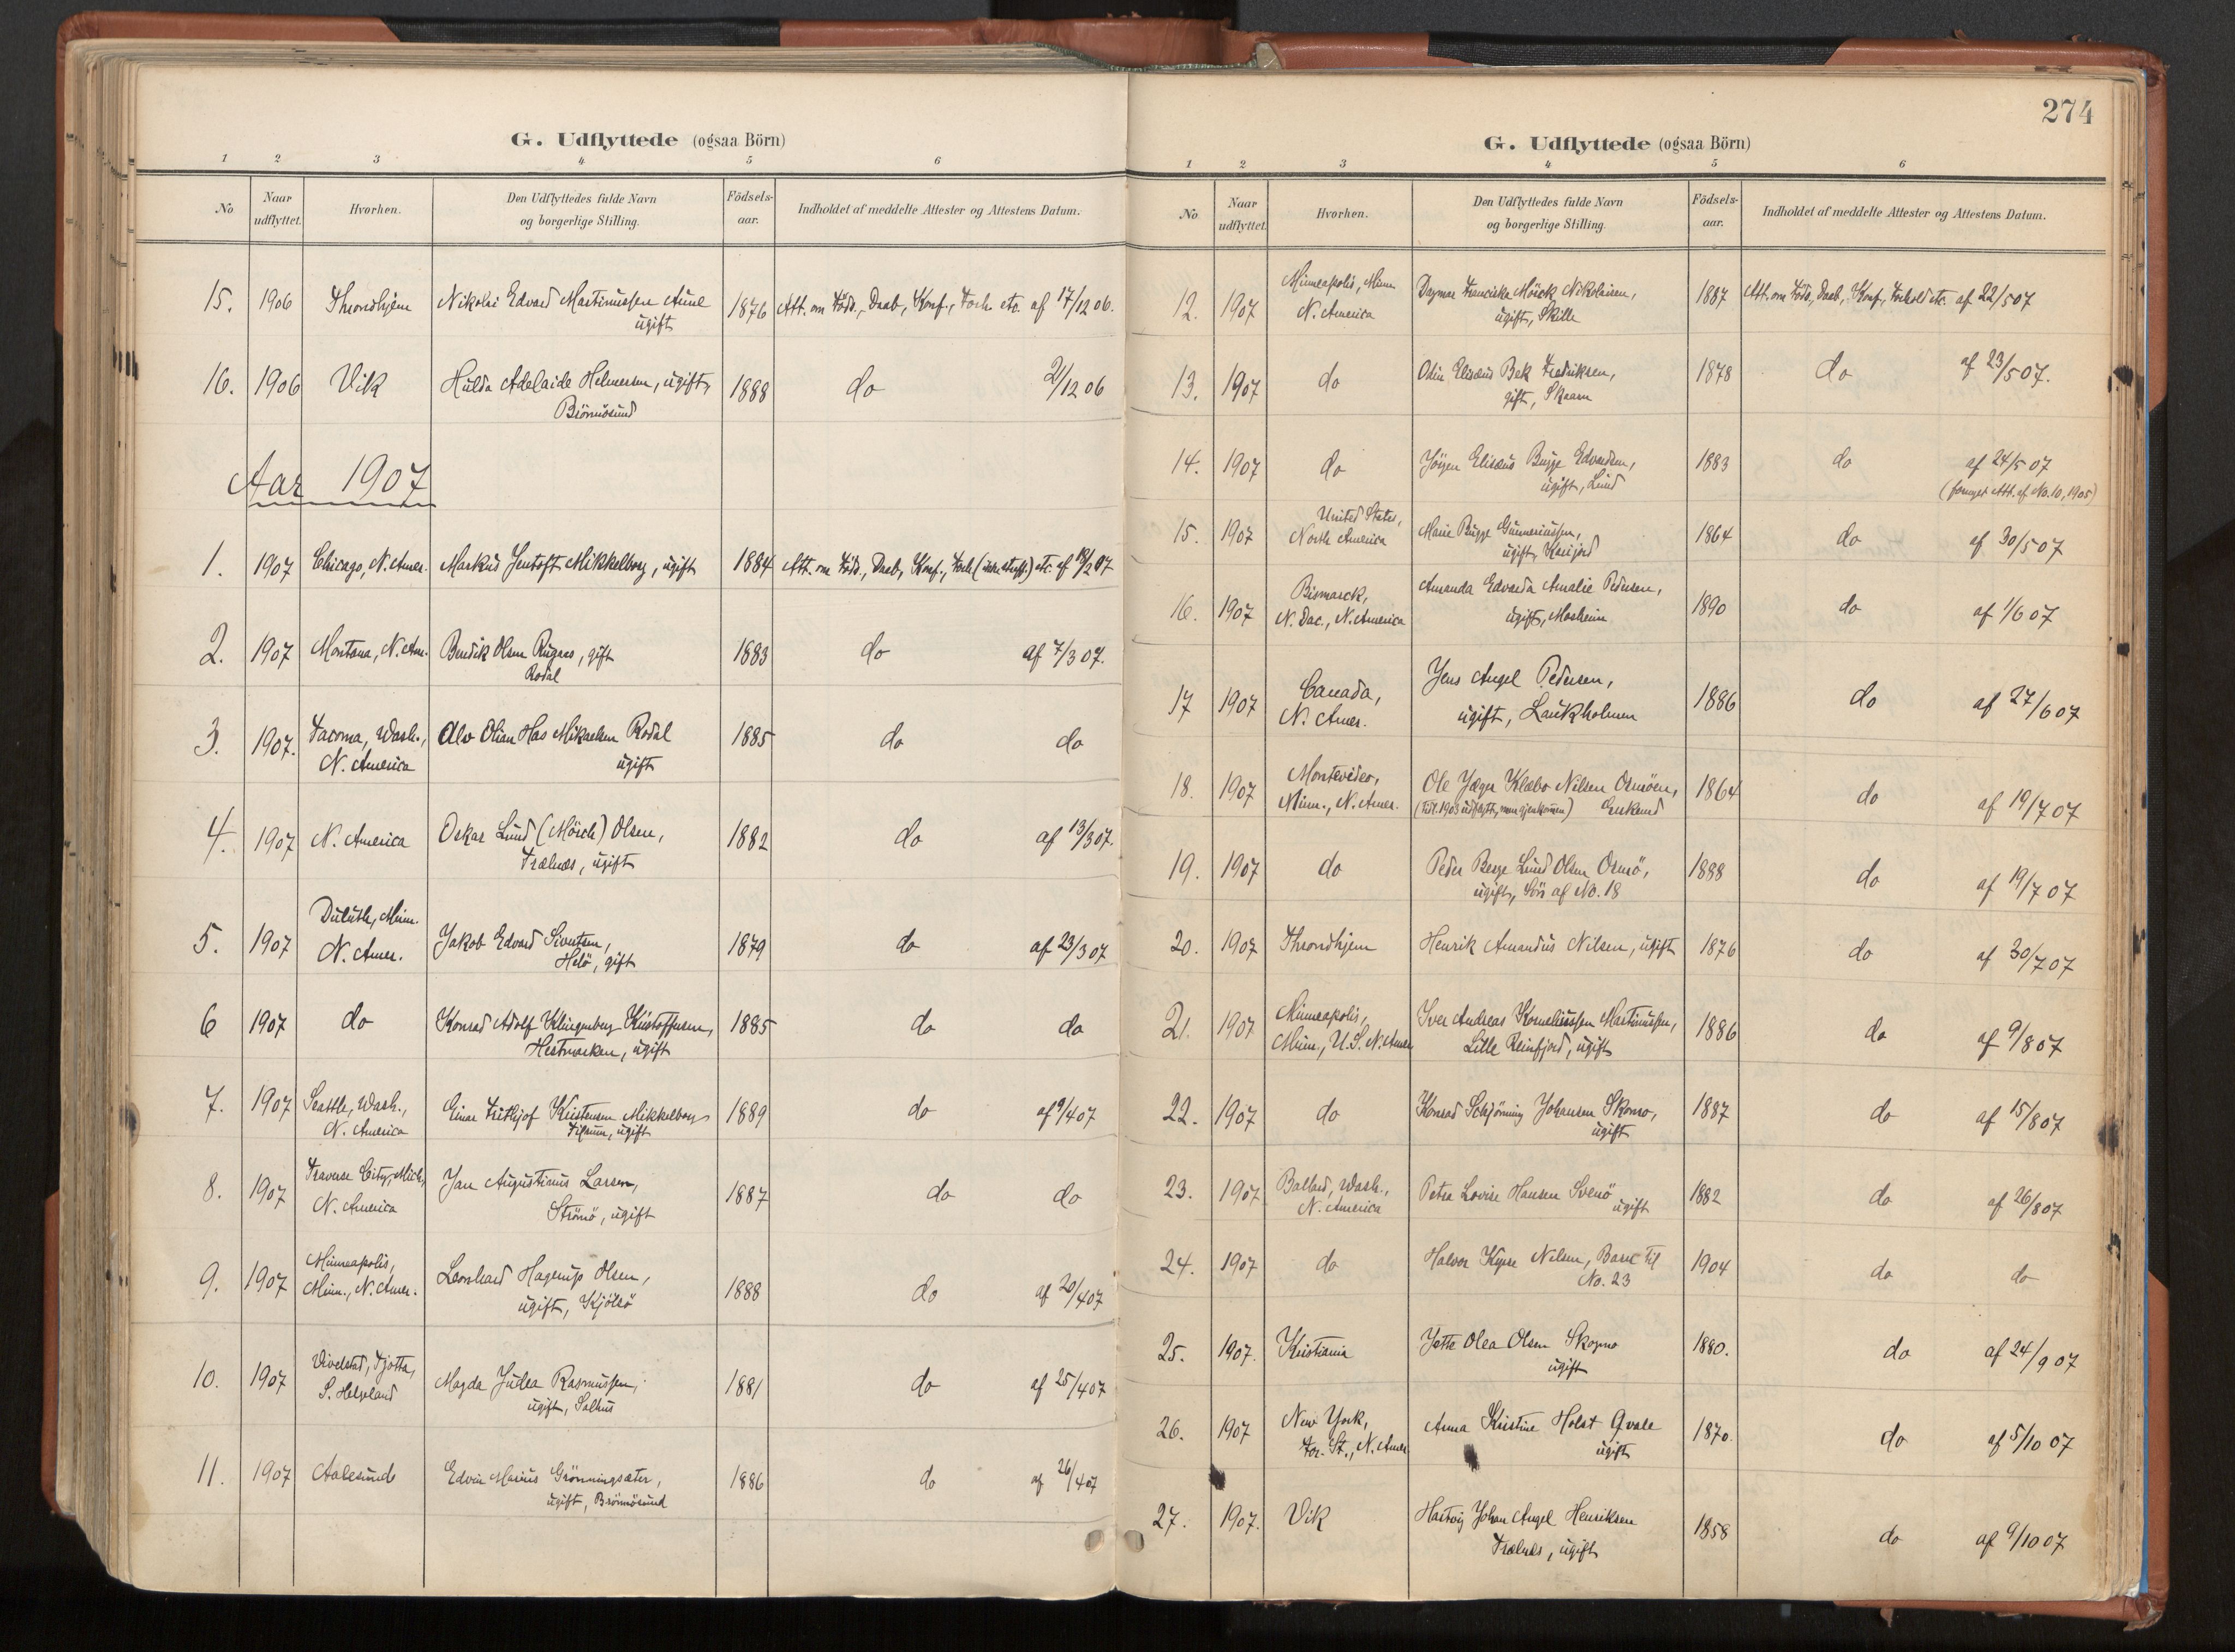 G. Udflyttede (ogsaa Börn)
1 2 3 4 5 6
No. Naar udflyttet. Hvorhen. Den Udflyttedes fulde Navn og borgerlige Stilling. Födsels-aar. Indholdet af meddelte Attester og Attestens Datum.
15. 1906 Throndhjem Nikolai Edvard Martinussen Aune 1876 Att. om Föds., Daab, Konf., Forh. etc. af 17/12 06.
ugift
16. 1906 Vik Hulda Adelaide Helmersen, ugift, 1888 do 21/12 06
Brönnösund
Aar 1907
1. 1907 Chicago, N. Amer. Markus Jentoft Mikkelborg, ugift 1884 Att. om Föds., Daab, Konf., Forh. etc. af
2. 1907 Montana, N. Am. Bendik Olsen, gift 1883 do af 7/3 07.
Rodal
3. 1907. Tacoma, Wash., Alv Olian Mikaelsen Rodal 1885 do do
N. America ugift
4. 1907 N. America Oskar Lund (Mörch) Olsen, 1882 do af 13/3 07.
Trælnes, ugift
Duluth, Minn.
5. 1907 N. Amer. Jakob Edvard Sivertsen, 1879 do af 23/3 07
gift
6 1907 do Konrad Adolf Klingenberg Kristoffersen, 1885 do do
Hestmarken, ugift
7. 1907 Seattle, Wash., Einar Frithjof Kristensen Mikkelborg 1889 do af 9/4 07
N. America Tilrum, ugift
8. 1907 Traverse City, Mich., Jan Augustinus Larsen, 1887 do do
N. America Strömö, ugift
Minneapolis,
9. 1907 Minn., N. Amer. Leonhard Hagerup Olsen, 1888 do af 20/4 07
ugift, Kjölsö
10. 1907 Vivelstad, Tjotta, Magda Judea Rasmussen, 1881 do af 25/4 07
S. Helgeland ugift, Salhus
11. 1907 Aalesund Edvin Marius Grönningsæter, 1886 do af 26/4 07
ugift, Brönnösund
274
G. Udflyttede (ogsaa Börn)
1 2 3 4 5 6
No. Naar udflyttet. Hvorhen. Den Udflyttedes fulde Navn og borgerlige Stilling. Födsels-aar. Indholdet af meddelte Attester og Attestens Datum.
12. 1907 Minneapolis, Minn Dagmar Franciska Mörck Nikolaisen, 1887 Att. om Föds., Daab, Konf., Forhold etc. af 22/5 07
N. America ugift, Skille
13. 1907 do Odin Elisæus Bek Fredriksen, 1878 do af 23/5 07.
gift, Skaarn
14. 1907 do Jörgen Elisæus Bugge Edvardsen, 1883 do af 24/5 07
ugift, Lund (fornyet Att. af No. 10, 1905)
United States,
15. 1907 North America Marie Bugge Gunneriussen, 1864 do af 30/5 07
ugift, Horsfjord
Bismarck,
16. 1907 N. Dac., N. America Amanda Edvarda Amalie Pedersen, 1890 do af 1/6 07
ugift, Mosheim
17 1907 Canada, Jens Angel Pedersen, 1886 do af 27/6 07
N. Amer. ugift, Laukholmen
18. 1907 Montevideo, Ole Jæger Klæbo Nilsen Osmöen, 1864 do af 19/7 07
Minn., N. Amer. (tidl. 1903 udflyttet, men gjenkommen) Enkemd
19. 1907 do Peder Berge Lund Olsen Osmö, 1888 do af 19/7 07
ugift, Sön af No. 18
20. 1907 Throndhjem Henrik Amandus Nilsen, ugift 1876 do af 30/7 07
21. 1907 Minneapolis, Iver Andreas Korneliussen Martinussen, 1886 do af 9/8 07
Minn., U.S. N. Amer Lille Reinfjord, ugift
22. 1907 do Konrad Schjönning Johansen Skomo, 1887 do af 15/8 07
ugift
23. 1907 Ballard, Wash., Petra Lovise Hansen Svenö 1882 do af 26/8 07
N. America ugift
24. 1907 do Halvor Nilsen, Barn til 1904 do do
No. 23
25. 1907. Kristiania Jette Olea Olsen Skogmo 1880. do af 24/9 07
ugift
26. 1907 New York, Anna Kristine Holst Qvale 1870. do af 5/10 07
For. St., N. Amer ugift
27. 1907. Vik Hartvig Johan Angel Henriksen 1858 do af 9/10 07
Trælnes, ugift